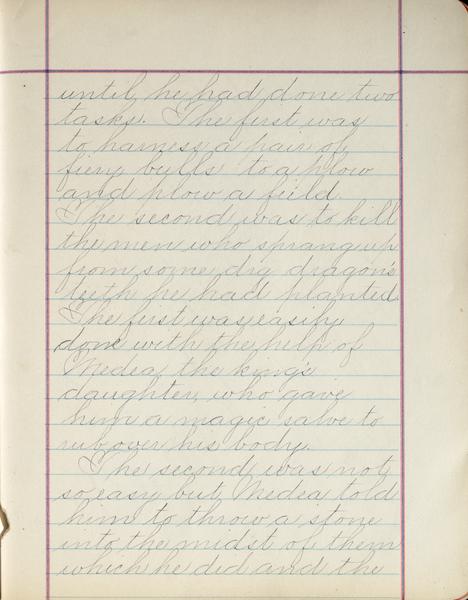 until he had done two
tasks. The first was
to harness a pair of
fiery bulls to a plow
and plow a feild.
The second was to kill
the men who sprang up
from some drg dragon's
teeth he had planted.
The first was easily
done with the help of
Medea, the king's
daughter, who gave
him a magic salve to
rub over his body.
The second was not
so easy but Medea told
him to throw a stone
into the midst of them
which he did and the